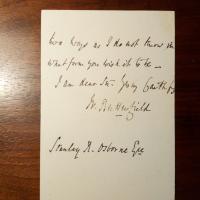 two ways as I do not know in
what form you wish it to be —
I am dear Sir Yours faithfully
W.
Stanley R. Osborne Esq